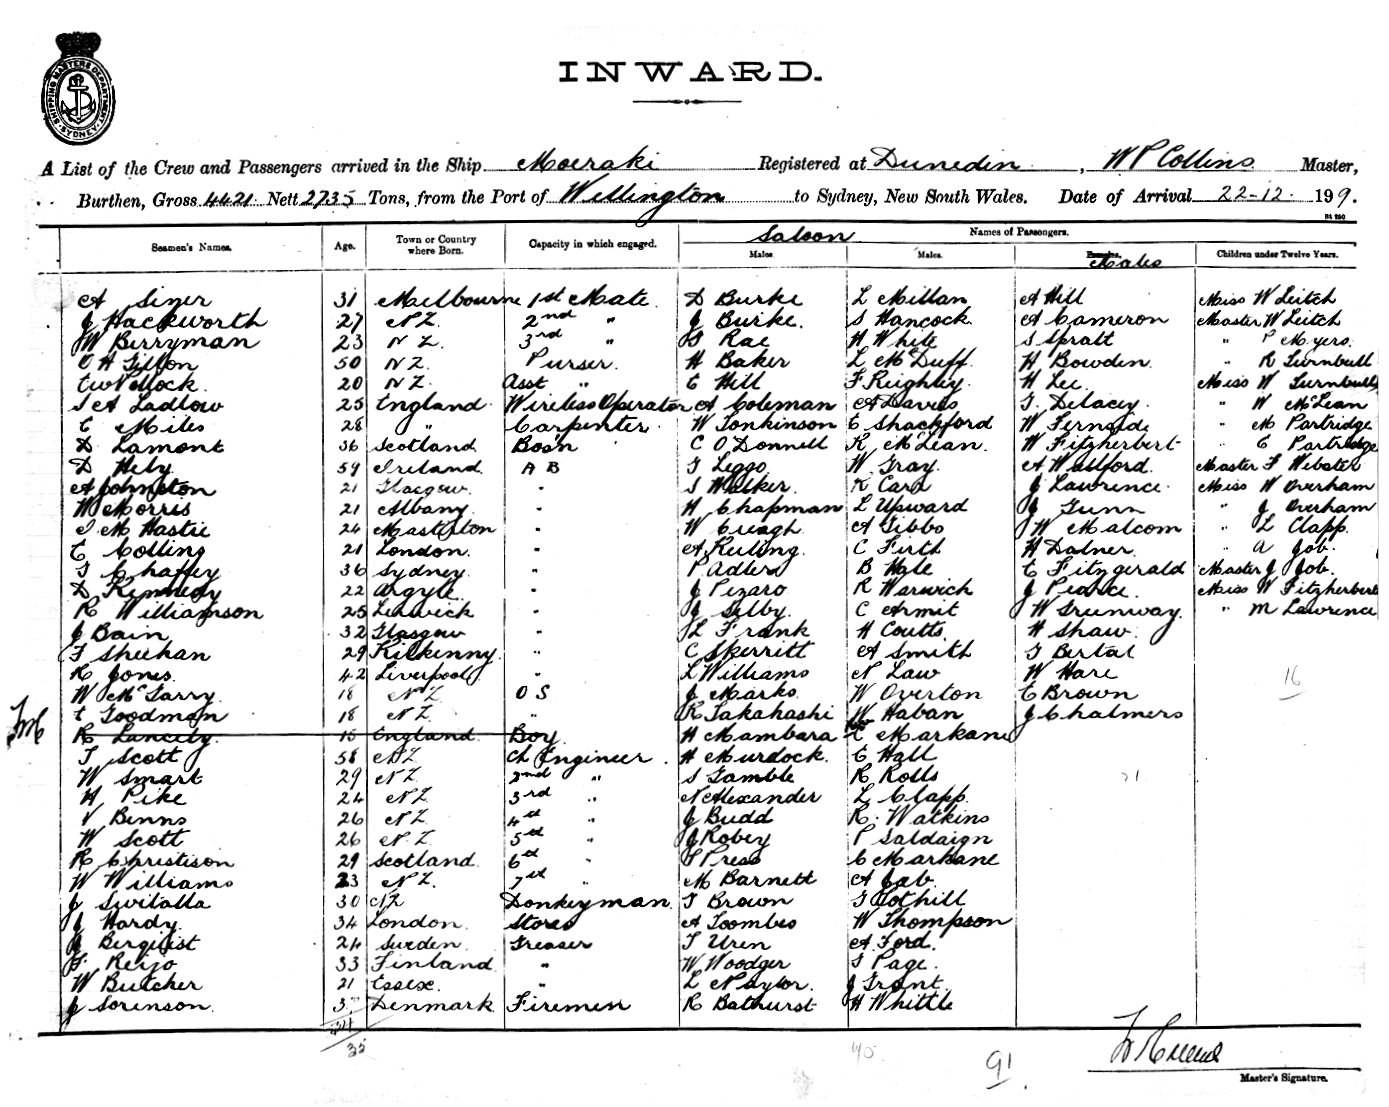 SHIPPING MASTERS DEPARTMENT SYDNEY
INWARD.
A List of the Crew and Passengers arrived in the Ship Moeraki Registered at Dunedin, W P Collins Master,
Burthen, Gross 4421 Nett 2735 Tons, from the Port of Wellington to Sydney, New South Wales. Date of Arrival 22-12- 199.
Saloon Names of Passengers.
Seamen's Names. Age. Town or Country where Born. Capacity in which engaged. Males. Males. Males Children under Twelve Years.
A Sizer 31 Melbourne 1st Mate D Burke L Millan A Hill Miss W Leitch
J Hackworth 27 NZ 2nd " J Burke S Hancock A Cameron Master W Leitch
W Berryman 23 NZ 3rd " Rae H White S Spratt " P Myers
O H 50 NZ Purser H Baker L McDuff H Bowden " R Turnbull
20 NZ Asst " E Hill F H Lee Miss W Turnbull
S A Ladlow 25 England Wireless Operator A Coleman A Davies T Delacey " W McLean
E Miles 28 " Carpenter W Tonkinson E Shackford W Fernald " M Partridge
D Lamont 36 Scotland Bosn C O'Donnell R McLean W Fitzherbert " E Partridge
D Hely 59 Ireland A B T Leggo W Gray A Wallford Master F Webster
A Johnston 21 Glasgow " S Walker K Carr J Lawrence Miss W Overham
W Morris 21 Albany " H Chapman L Upward J Gunn " J Overham
M Hastie 24 Masterton " W Creagh A Gibbs W Malcom " L Clapp
E Colling 21 London " A Keeling C Firth H Dalner " A Job
T Chaffey 36 Sydney " P Adler B Hale E Fitzgerald Master J Job
D Kennedy 22 Argyle " J Pizaro R Warwick J Pearce Miss W Fitzherbert
R Williamson 25 Lerwick " J Selby C Armit W Greenway " M Lawrence
J Bain 32 Glasgow " L Frank H Coutts H Shaw
F Sheehan 29 Kilkenny " C Skerritt A Smith T Bertal
R Jones 42 Liverpool " L Williams N Law W Hare 16
W McGarry 18 NZ O S J Marks W Overton E Brown
E Goodman 18 NZ " R Takahashi W Haban J Chalmers
R Lancely 18 England Boy H Mambara E Markane
T Scott 58 NZ Ch Engineer H Murdock E Hall
W Smart 29 NZ 2nd " S Gamble R Rolls 21
H Pike 24 NZ 3rd " N Alexander L Clapp
V Binns 26 NZ 4th " J Budd R Watkins
W Scott 26 NZ 5th " J Robey P Saldaign
R Christison 29 Scotland 6th " Press C Markane
W Williams 23 NZ 7th " M Barnett A Job
J Switalla 30 NZ Donkeyman T Brown T Tothill
J Hardy 34 London Stores A Toombes W Thompson
J Berquist 24 Sweden Greaser T Uren A Ford
F Reijo 33 Finland " W Woodger T Page
W Butcher 21 Essex " L Naylor J Grant
J Sorenson Denmark Firemen R Bathurst H Whittle
35 40 91
Master's Signature.